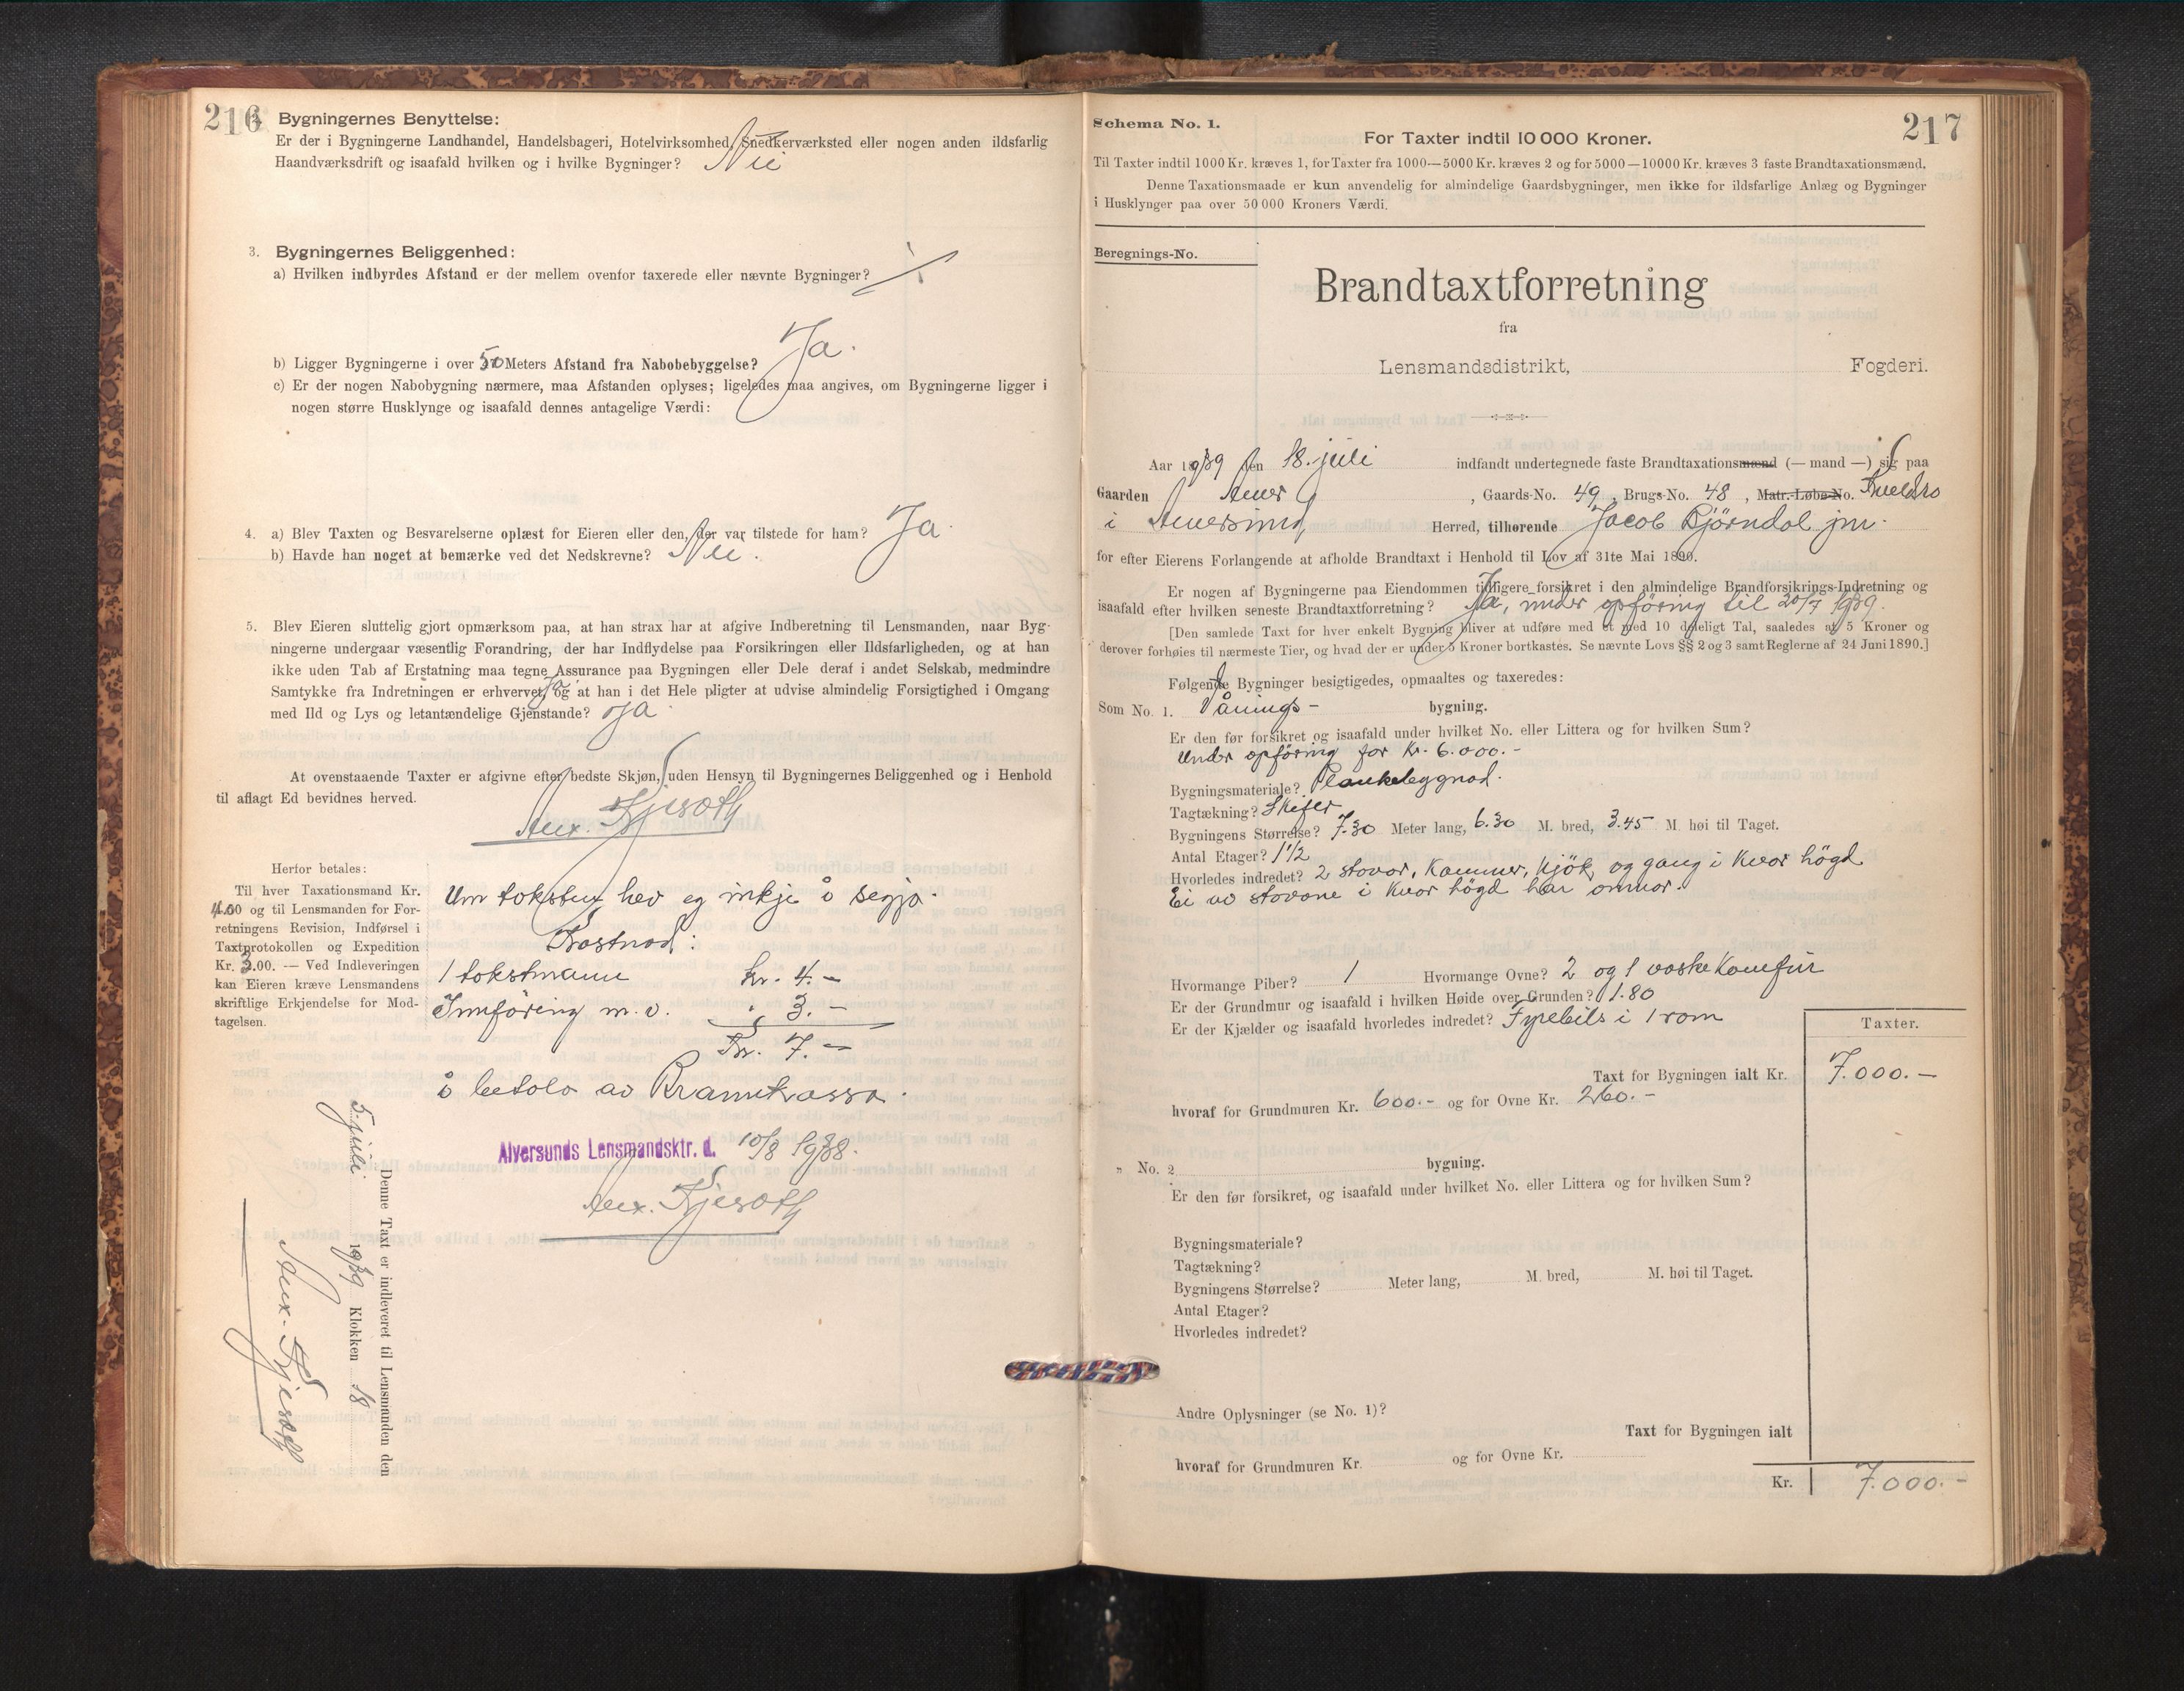 216
2. Bygningernes Benyttelse:
Er der i Bygningerne Landhandel, Handelsbageri, Hotelvirksomhed, Snedkerværksted eller nogen anden ildsfarlig
Haandværksdrift og isaafald hvilken og i hvilke Bygninger? Nei
3. Bygningernes Beliggenhed:
a) Hvilken indbyrdes Afstand er der mellem ovenfor taxerede eller nævnte Bygninger?
b) Ligger Bygningerne i over 50 Meters Afstand fra Nabobebyggelse? Ja.
c) Er der nogen Nabobygning nærmere, maa Afstanden oplyses; ligeledes maa angives, om Bygningerne ligger i
nogen større Husklynge og isaafald dennes antagelige Værdi:
4. a) Blev Taxten og Besvarelserne oplæst for Eieren eller den, der var tilstede for ham? Ja.
b) Havde han noget at bemærke ved det Nedskrevne? Nei.
5. Blev Eieren sluttelig gjort opmærksom paa, at han strax har at afgive Indberetning til Lensmanden, naar Byg-
ningerne undergaar væsentlig Forandring, der har Indflydelse paa Forsikringen eller Ildsfarligheden, og at han
ikke uden Tab af Erstatning maa tegne Assurance paa Bygningen eller Dele deraf i andet Selskab, medmindre
Samtykke fra Indretningen er erhvervet, og at han i det Hele pligter at udvise almindelig Forsigtighed i Omgang
med Ild og Lys og letantændelige Gjenstande? Ja
At ovenstaaende Taxter er afgivne efter bedste Skjøn, uden Hensyn til Bygningernes Beliggenhed og i Henhold
til aflagt Ed bevidnes herved.
Herfor betales:
Til hver Taxationsmand Kr.
4.00 og til Lensmanden for For-
retningens Revision, Indførsel i
Taxtprotokollen og Expedition
Kr. 3.00. — Ved Indleveringen
kan Eieren kræve Lensmandens
skriftlige Erkjendelse for Mod-
tagelsen.
Um taksten hev eg inkje å segja.
Kostnad:
1 takstmann kr. 4.-
Innføring m.v. " 3.-
Kr. 7.-
å betala av Brannkassa.
Alversunds Lensmandsktr. d. 10/8 1938.
Denne Taxt er indleveret til Lensmanden den
5. juli 1939 Klokken 18
217
Schema No. 1.
For Taxter indtil 10 000 Kroner.
Til Taxter indtil 1000 Kr. kræves 1, for Taxter fra 1000—5000 Kr. kræves 2 og for 5000—10000 Kr. kræves 3 faste Brandtaxationsmænd.
Denne Taxationsmaade er kun anvendelig for almindelige Gaardsbygninger, men ikke for ildsfarlige Anlæg og Bygninger
i Husklynger paa over 50 000 Kroners Værdi.
Beregnings-No.
Brandtaxtforretning
fra
Lensmandsdistrikt, Fogderi.
Aar 1939 den 18. juli indfandt undertegnede faste Brandtaxationsmænd (— mand —) sig paa
Gaarden Alver, Gaards-No. 49, Brugs-No. 48, Matr.-Løbe-No. Kveldro
i Alversund, Herred, tilhørende Jacob Bjørndal jnr.
for efter Eierens Forlangende at afholde Brandtaxt i Henhold til Lov af 31te Mai 1890.
Er nogen af Bygningerne paa Eiendommen tidligere forsikret i den almindelige Brandforsikrings-Indretning og
isaafald efter hvilken seneste Brandtaxtforretning? Ja, under opføring til 20/7 1939.
[Den samlede Taxt for hver enkelt Bygning bliver at udføre med et med 10 deleligt Tal, saaledes at 5 Kroner og
derover forhøies til nærmeste Tier, og hvad der er under 5 Kroner bortkastes. Se nævnte Lovs §§ 2 og 3 samt Reglerne af 24 Juni 1890.]
Følgende Bygninger besigtigedes, opmaaltes og taxeredes:
Som No. 1. Vånings- bygning.
Er den før forsikret og isaafald under hvilket No. eller Littera og for hvilken Sum?
Under opføring for kr. 6.000.-
Bygningsmateriale? Plankebyggnad.
Tagtækning? Skifer
Bygningens Størrelse? 7.30 Meter lang, 6.30 M. bred, 3.45 M. høi til Taget.
Antal Etager? 1 1/2
Hvorledes indredet? 2 stovor, kammer, kjök, og gang i kvar högd
Ei av stovone i kvar högd har omnar.
Hvormange Piber? 1 Hvormange Ovne? 2 og 1 vaskekomfür
Er der Grundmur og isaafald i hvilken Høide over Grunden? 1.80
Er der Kjælder og isaafald hvorledes indredet? Fyrebils i 1 rom
Taxter.
Taxt for Bygningen ialt Kr. 7.000.-
hvoraf for Grundmuren Kr. 600.- og for Ovne Kr. 260.-
" No. 2 bygning.
Er den før forsikret, og isaafald under hvilket No. eller Littera og for hvilken Sum?
Bygningsmateriale?
Tagtækning?
Bygningens Størrelse? Meter lang, M. bred, M. høi til Taget.
Antal Etager?
Hvorledes indredet?
Andre Oplysninger (se No. 1)?
Taxt for Bygningen ialt
hvoraf for Grundmuren Kr. og for Ovne Kr.
Kr. 7.000.-